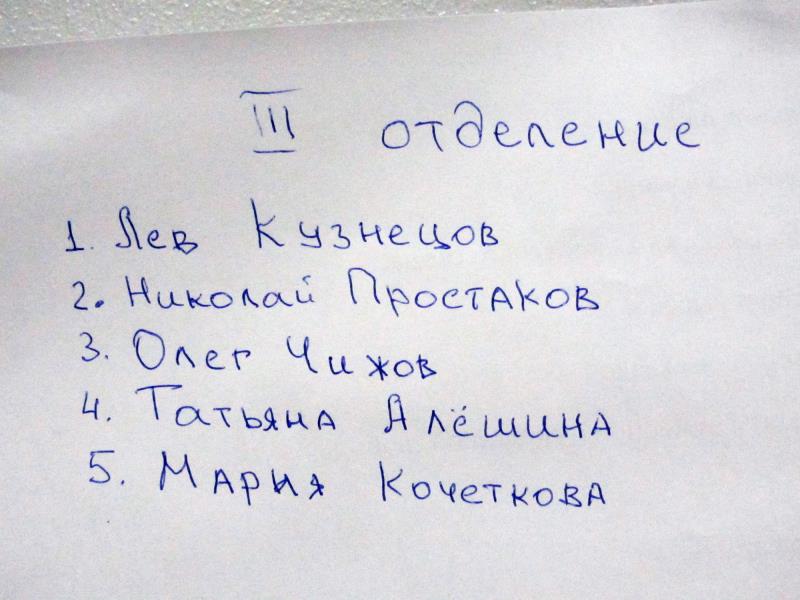 III отделение
1. Лев Кузнецов
2. Николай Простаков
3. Олег Чижов
4. Татьяна Алёшина
5. Мария Кочеткова